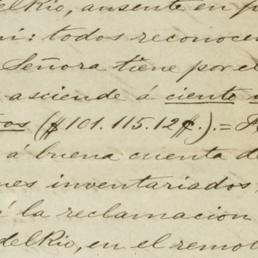 del Rio, ausente en p
ni: todos reconocen
Señora tiene por el
asciende á ciento
tos ($101.115.12¢.).=
á buena cuenta de
nes inventariados,
á la reclamacion
del Rio, en el remot